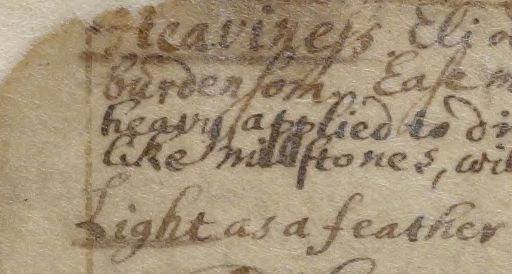 Heaviness. Eli
burdensom. Ease
heavy applied to
like millstones, wi
Light as a feather